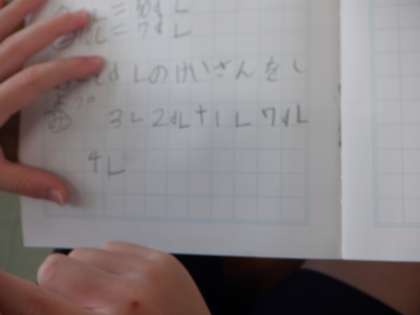 = 10dL
L = 7dL
dLのけいさんをし
3L2dL+1L7dL
4L